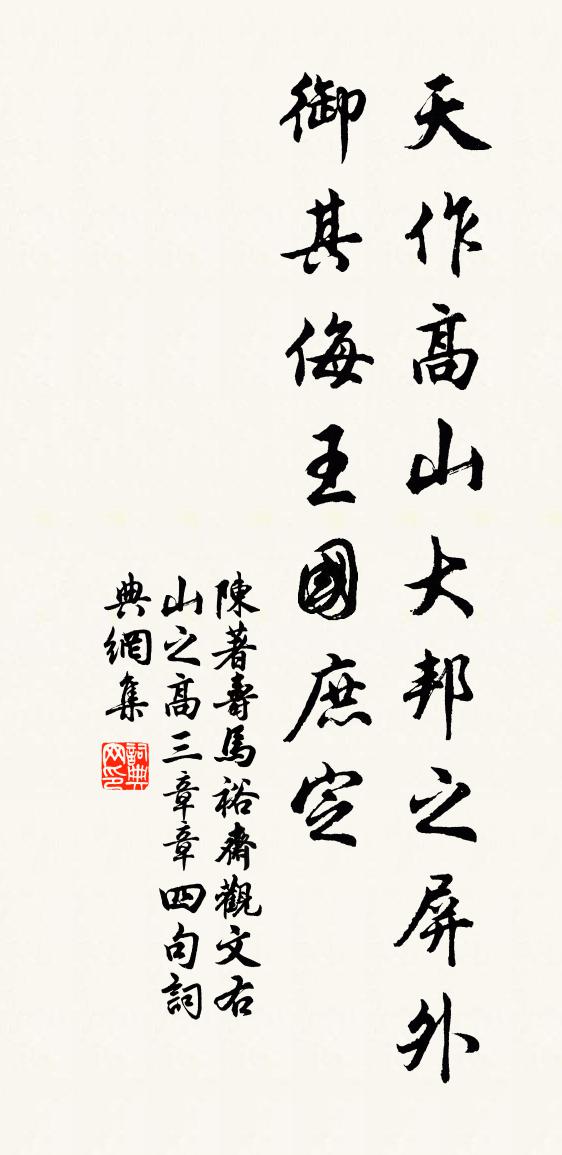 天作高山大邦之屏外
御其侮王國庶定
陳著壽馬裕齋觀文右
山之高三章章四句詞
典網集
詞典网印